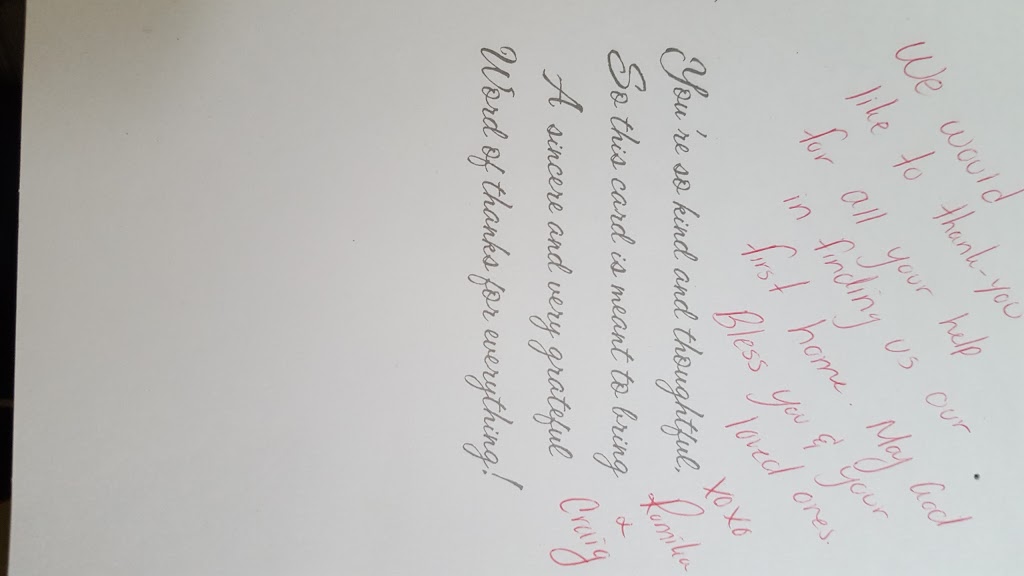 We would
like to thank-you
for all your help
in finding us our
first home. May God
Bless you & your
loved ones.
You're so kind and thoughtful,
So this card is meant to bring
A sincere and very grateful
Word of thanks for everything!
xoxo
Romilia
&
Craig